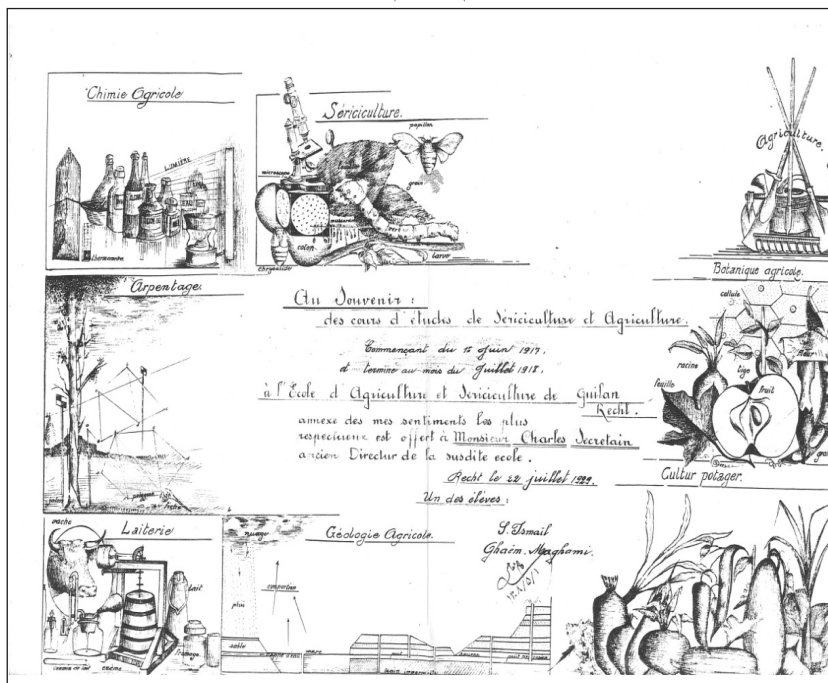 Chimie Agricole
LUMIÈRE
thermomètre
Sériciculture.
papillon
microscope
grain
cocon
larve
chrysalide
Agriculture.
Arpentage.
Botanique agricole.
cellule
racine
tige
fleur
feuille
fruit
Au Souvenir :
des cours d'études de Sériciculture et Agriculture.
Commençant du 12 Juin 1917,
et termine au mois du Juillet 1918,
à l'Ecole d'Agriculture et Sériciculture de Guilan
Recht.
annexe des mes sentiments les plus
respectueux est offert à Monsieur Charles Secretain
ancien Directur de la susdite ecole.
Recht le 22 juillet 1929.
Un des élèves :
S. Ismail
Ghaëm. Maghami.
Cultur potager.
Laiterie
vache
Lait
fromage
crème
Géologie Agricole.
nuage
évaporation
pluie
sable
mare
source